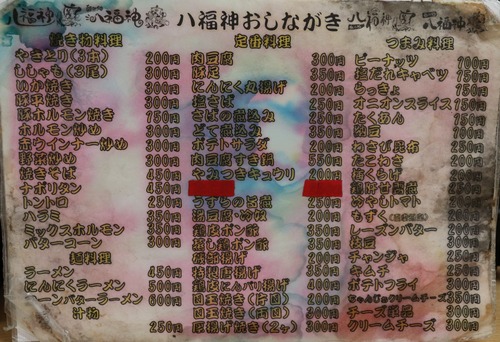 八福神 八福神 八福神おしながき 八福神 八福神
焼き物料理
やきとり(3本) 200円
ししゃも(3尾) 300円
いか焼き 300円
豚平焼き 300円
豚ホルモン焼き 150円
ホルモン炒め 300円
赤ウインナー炒め 300円
野菜炒め 300円
焼きそば 450円
ナポリタン 450円
トントロ 250円
ハラミ 350円
ミックスホルモン 350円
バターコーン 300円
麺料理
ラーメン 450円
にんにくラーメン 500円
コーンバターラーメン 600円
汁物
250円
定番料理
肉豆腐 350円
豚足 350円
にんにく丸揚げ 200円
塩さば 250円
さばの煮込み 250円
どて煮込み 350円
ポテトサラダ 300円
肉豆腐すき鍋 550円
やみつきキュウリ 200円
うずらの旨煮 250円
湯豆腐・冷奴 200円
鶏皮ポン酢 300円
豚しゃぶポン酢 350円
磯部揚げ
特製唐揚げ 350円
鶏皮にんバリ揚げ 400円
目玉焼き(片面) 200円
目玉焼き(両面) 300円
厚揚げ焼き(2ヶ) 300円
つまみ料理
ピーナッツ 100円
塩だれキャベツ 150円
らっきょ 150円
オニオンスライス 150円
たくあん 150円
わさび昆布 250円
たこわさ 200円
枝豆 300円
冷やしトマト 250円
もずく
レーズンバター 200円
チャンジャ 250円
キムチ 250円
ポテトフライ 300円
ちゃんじゃクリームチーズ 350円
チーズ単品 300円
クリームチーズ 300円